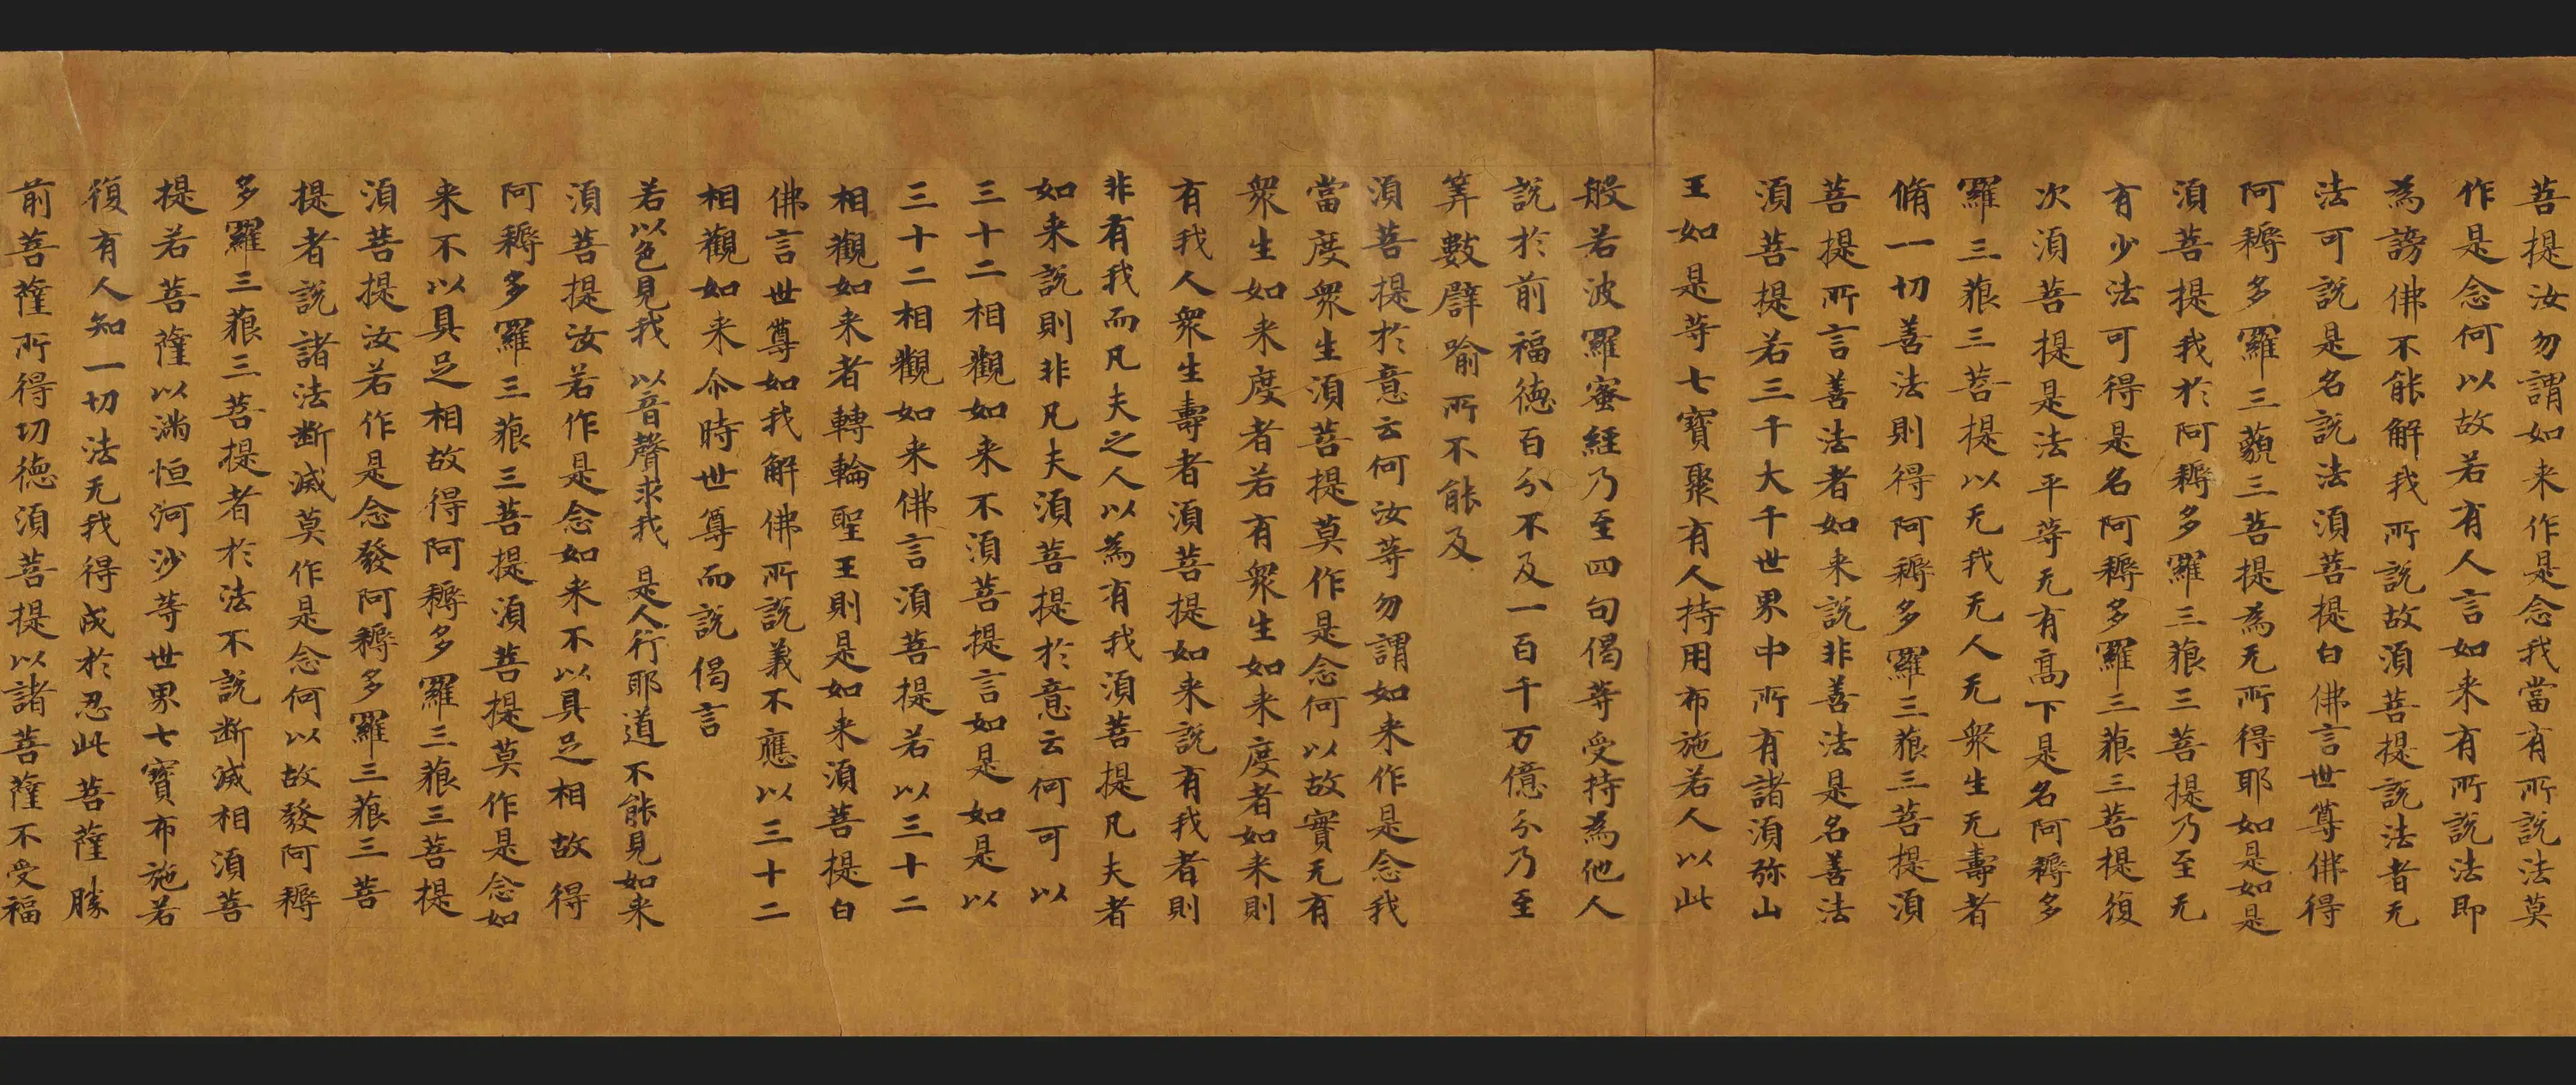 菩提汝勿謂如来作是念我當有所說法莫
作是念何以故若有人言如来有所說法即
為謗佛不能解我所說故須菩提說法者无
法可說是名說法須菩提白佛言世尊佛得
阿耨多羅三藐三菩提為无所得耶如是如是
須菩提我於阿耨多羅三藐三菩提乃至无
有少法可得是名阿耨多羅三藐三菩提復
次須菩提是法平等无有高下是名阿耨多
羅三藐三菩提以无我无人无衆生无壽者
脩一切善法則得阿耨多羅三藐三菩提須
菩提所言善法者如来說非善法是名善法
須菩提若三千大千世界中所有諸須弥山
王如是等七寶聚有人持用布施若人以此
般若波羅蜜經乃至四句偈等受持為他人
說於前福德百分不及一百千万億分乃至
筭數譬喻所不能及
須菩提於意云何汝等勿謂如来作是念我
當度衆生須菩提莫作是念何以故實无有
衆生如来度者若有衆生如来度者如来則
有我人衆生壽者須菩提如来說有我者則
非有我而凡夫之人以為有我須菩提凡夫者
如来說則非凡夫須菩提於意云何可以
三十二相觀如来不須菩提言如是如是以
三十二相觀如来佛言須菩提若以三十二
相觀如来者轉輪聖王則是如来須菩提白
佛言世尊如我解佛所說義不應以三十二
相觀如来尒時世尊而說偈言
若以色見我 以音聲求我 是人行耶道 不能見如来
須菩提汝若作是念如来不以具足相故得
阿耨多羅三藐三菩提須菩提莫作是念如
来不以具足相故得阿耨多羅三藐三菩提
須菩提汝若作是念發阿耨多羅三藐三菩
提者說諸法断滅莫作是念何以故發阿耨
多羅三藐三菩提者於法不說断滅相須菩
提若菩薩以滿恒河沙等世界七寶布施若
復有人知一切法无我得成於忍此菩薩勝
前菩薩所得功德須菩提以諸菩薩不受福